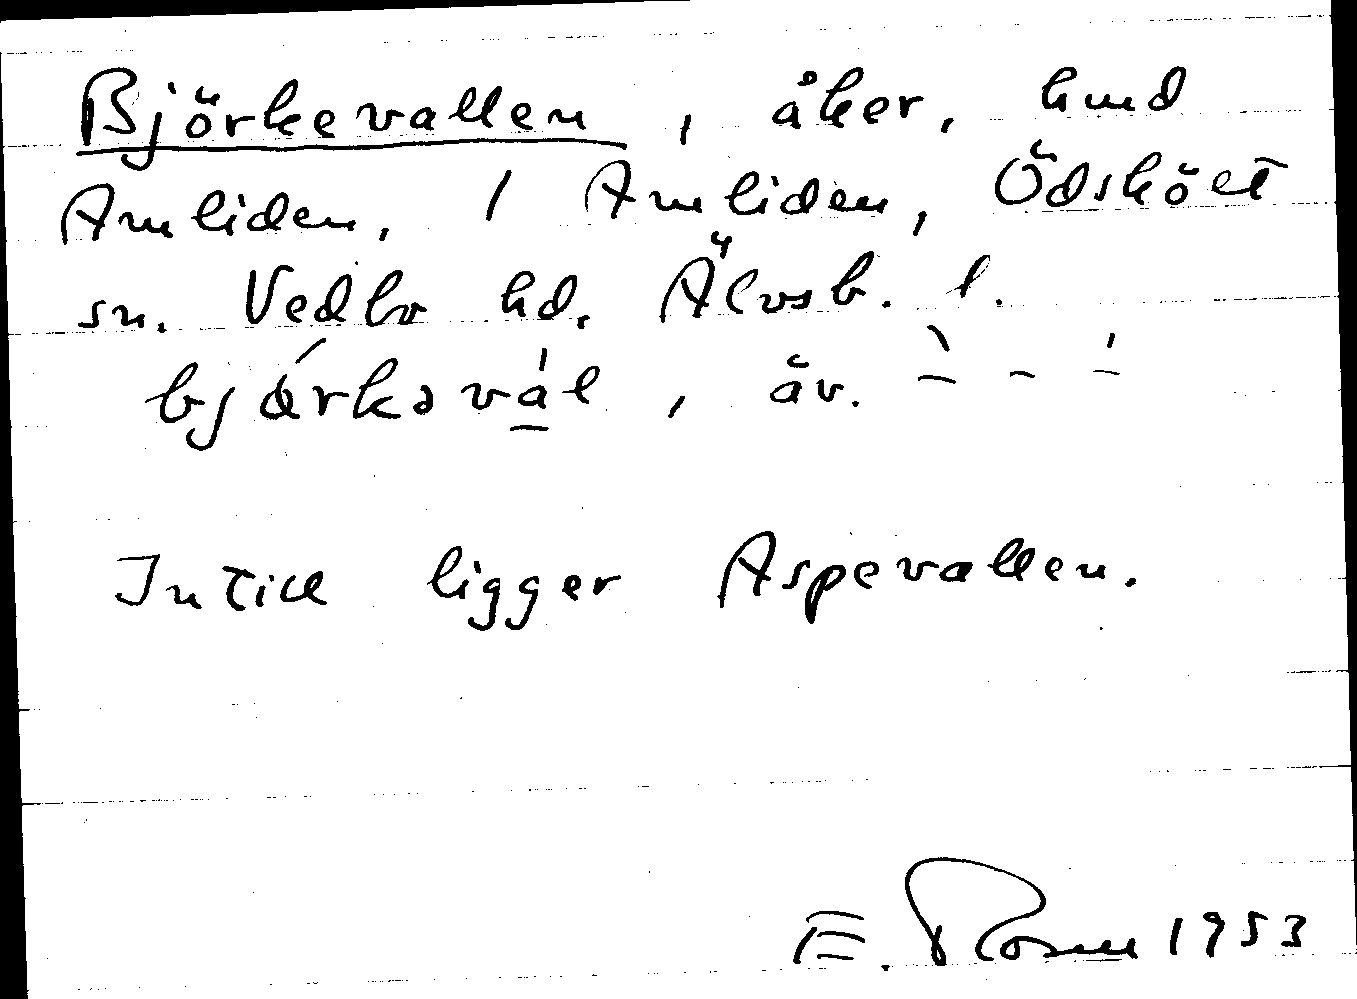 Björkevallen, åker, hmd
Amliden, / Amliden, Ödskölt
sn. Vedbo hd. Älvsb. l.
bjǿrkəvál, äv. ̀– – ́–
Intill ligger Aspevallen.
E. Rosell 1953